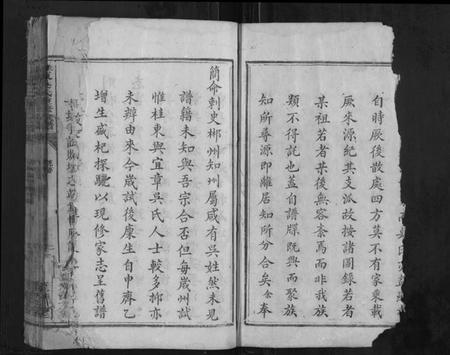 自時厥後散處四方莫不有家乘載
厥來源紀其支派故按諸圖錄若者
某祖若者某後無容紊焉而非我族
類不得託也蓋自譜牒既興而聚族
知所尋源即離居知所分合矣余奉
簡命刺史郴州知州屬咸有吳姓然未見
譜籍未知與吾宗合否但每歲州試
惟桂東與宜章吳氏人士較多郴亦
未辨由來今歲試後慶生自申齊乙
增生盛杞探驪以現修家志呈舊譜